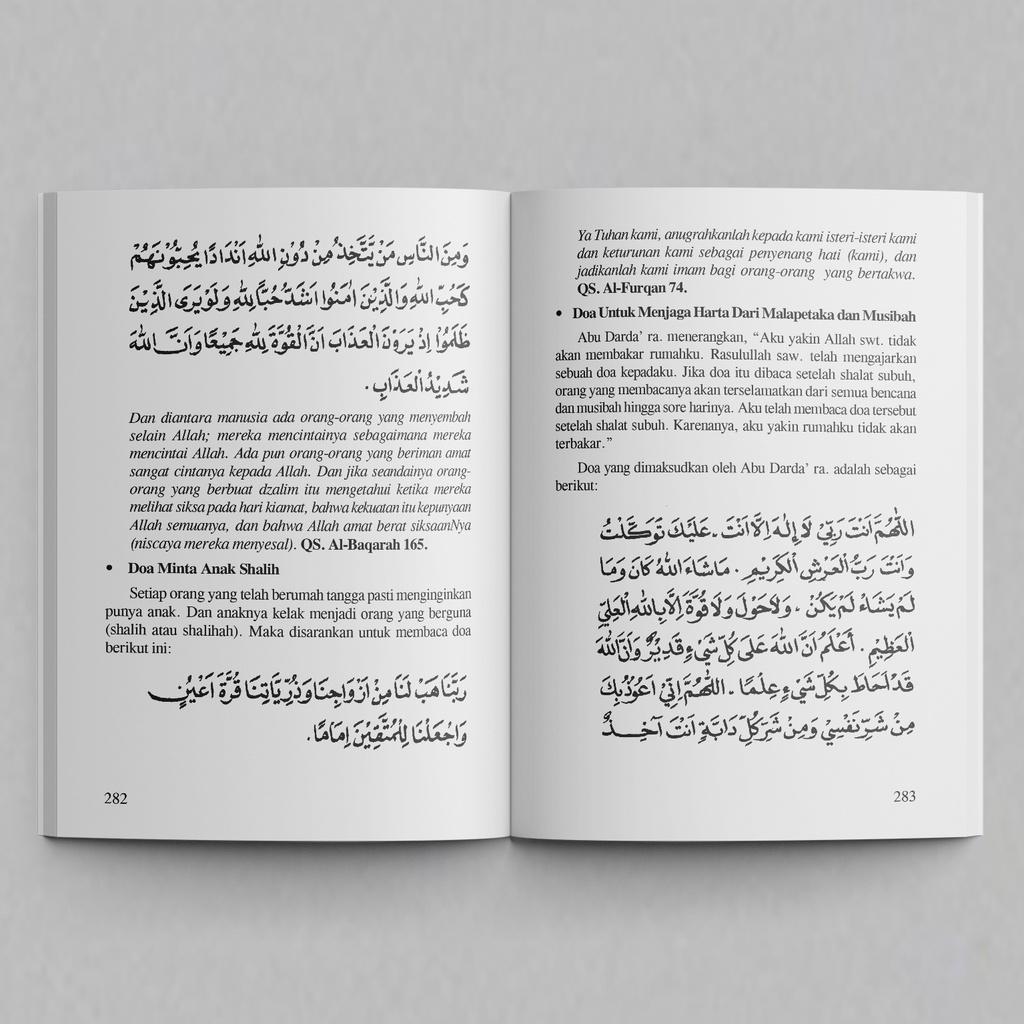 وَمِنَ النَّاسِ مَنْ يَتَّخِذُ مِنْ دُوْنِ اللهِ اَنْدَادًا يُحِبُّوْنَهُمْ
كَحُبِّ اللهِ وَالَّذِيْنَ اٰمَنُوا اَشَدُّ حُبًّا لِلهِ وَلَوْ يَرَى الَّذِيْنَ
ظَلَمُوْا اِذْ يَرَوْنَ الْعَذَابَ اَنَّ الْقُوَّةَ لِلهِ جَمِيْعًا وَاَنَّ اللهَ
شَدِيْدُ الْعَذَابِ.
Dan diantara manusia ada orang-orang yang menyembah
selain Allah; mereka mencintainya sebagaimana mereka
mencintai Allah. Ada pun orang-orang yang beriman amat
sangat cintanya kepada Allah. Dan jika seandainya orang-
orang yang berbuat dzalim itu mengetahui ketika mereka
melihat siksa pada hari kiamat, bahwa kekuatan itu kepunyaan
Allah semuanya, dan bahwa Allah amat berat siksaanNya
(niscaya mereka menyesal). QS. Al-Baqarah 165.
• Doa Minta Anak Shalih
Setiap orang yang telah berumah tangga pasti menginginkan
punya anak. Dan anaknya kelak menjadi orang yang berguna
(shalih atau shalihah). Maka disarankan untuk membaca doa
berikut ini:
رَبَّنَا هَبْ لَنَا مِنْ اَزْوَاجِنَا وَذُرِّيَّاتِنَا قُرَّةَ اَعْيُنٍ
وَاجْعَلْنَا لِلْمُتَّقِيْنَ اِمَامًا.
282
Ya Tuhan kami, anugrahkanlah kepada kami isteri-isteri kami
dan keturunan kami sebagai penyenang hati (kami), dan
jadikanlah kami imam bagi orang-orang yang bertakwa.
QS. Al-Furqan 74.
• Doa Untuk Menjaga Harta Dari Malapetaka dan Musibah
Abu Darda' ra. menerangkan, “Aku yakin Allah swt. tidak
akan membakar rumahku. Rasulullah saw. telah mengajarkan
sebuah doa kepadaku. Jika doa itu dibaca setelah shalat subuh,
orang yang membacanya akan terselamatkan dari semua bencana
dan musibah hingga sore harinya. Aku telah membaca doa tersebut
setelah shalat subuh. Karenanya, aku yakin rumahku tidak akan
terbakar.”
Doa yang dimaksudkan oleh Abu Darda' ra. adalah sebagai
berikut:
اَللّٰهُمَّ اَنْتَ رَبِّيْ لَا اِلٰهَ اِلَّا اَنْتَ. عَلَيْكَ تَوَكَّلْتُ
وَاَنْتَ رَبُّ الْعَرْشِ الْكَرِيْمِ. مَاشَاءَ اللهُ كَانَ وَمَا
لَمْ يَشَاءْ لَمْ يَكُنْ. وَلَاحَوْلَ وَلَا قُوَّةَ اِلَّا بِاللهِ الْعَلِيِّ
الْعَظِيْمِ. أَعْلَمُ اَنَّ اللهَ عَلَى كُلِّ شَيْءٍ قَدِيْرٌ وَاَنَّ اللهَ
قَدْ اَحَاطَ بِكُلِّ شَيْءٍ عِلْمًا. اَللّٰهُمَّ اِنِّيْ اَعُوْذُبِكَ
مِنْ شَرِّ نَفْسِيْ وَمِنْ شَرِّ كُلِّ دَابَّةٍ اَنْتَ آخِذٌ
283